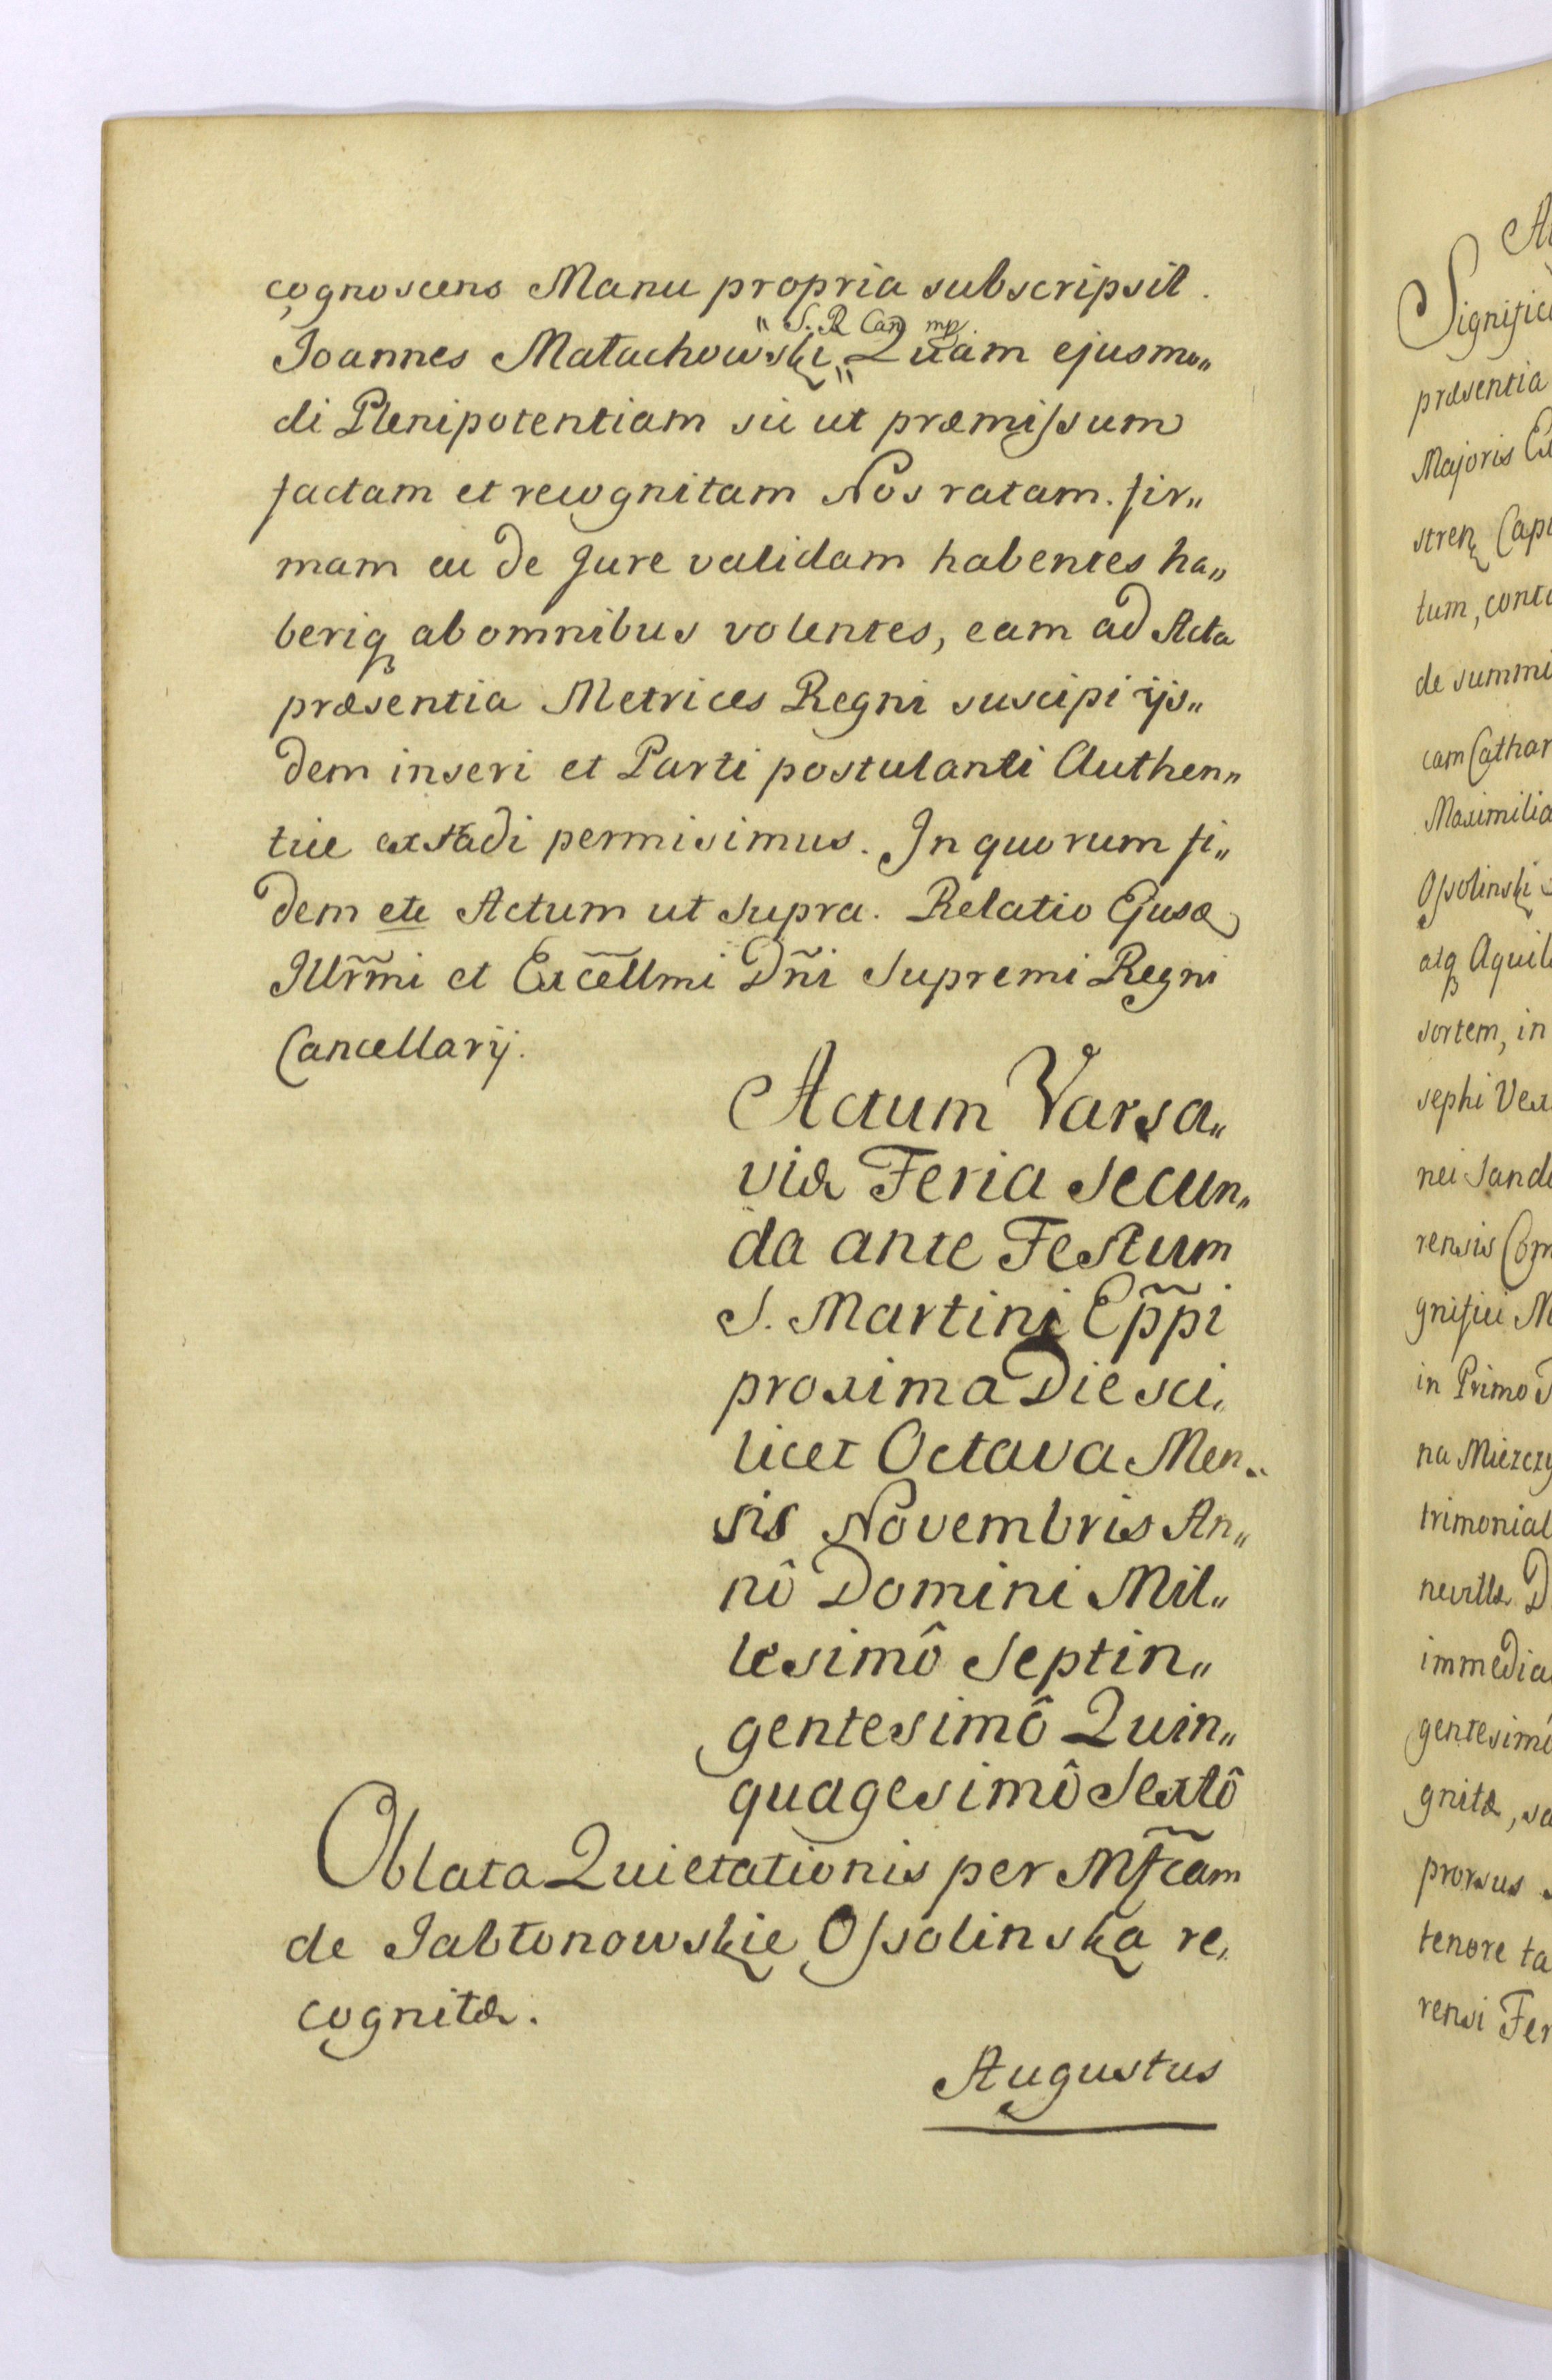 cognoscens Manu propria subscripsit.
" S. R. Can mp.
Joannes Małachowski" Quam ejusmo„
di Plenipotentiam sic ut præmissum
factam et recognitam Nos ratam. fir„
mam ac de Jure validam habentes ha„
beriq ab omnibus volentes, eam ad Acta
præsentia Metrices Regni suscipi ijs„
dem inseri et Parti postulanti Authen„
tice extradi permisimus. In quorum fi„
dem etc Actum ut supra. Relatio Ejusd
Illr̃mi et Excẽllmi Dñi Supremi Regni
Cancellarij.
Actum Varsa„
viæ Feria Secun„
da ante Festum
S. Martini Ep̃pi
proxima Die sci„
licet Octava Men„
sis Novembris An„
nô Domini Mil„
lesimô Septin„
gentesimô Quin„
quagesimô Sextô
Oblata Quietationis per Mf̃cam
de Jabłonowskie Ossolinska re„
cognitæ.
Augustus
præsentia
Majoris
tum,
de summi
Maximilia
Ossolinski
atq Aquil
sortem, in
sephi Vex
nei Sand
rensis Com
gnifici M
in Primo
trimonial
immedia
gentesimô
gnitæ, sa
prorsus
tenore ta
rensi Fer